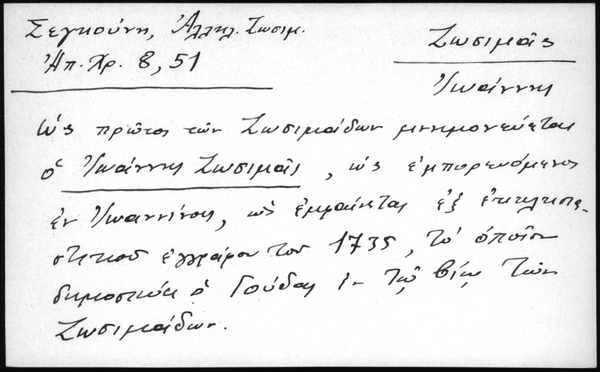 Σεγκούνη, Ἀλληλ. Ζωσιμ.
Ἠπ. Χρ. 8, 51
Ζωσιμᾶς
Ἰωάννης
Ὡς πρῶτος τῶν Ζωσιμάδων μνημονεύεται
ὁ Ἰωάννης Ζωσιμᾶς, ὡς ἐμπορευόμενος
ἐν Ἰωαννίνοις, ὡς ἐμφαίνεται ἐξ ἐκκλησια-
στικοῦ ἐγγράφου τοῦ 1735, τὸ ὁποῖον
δημοσιεύει ὁ Γούδας ἐν τῷ βίῳ τῶν
Ζωσιμάδων.